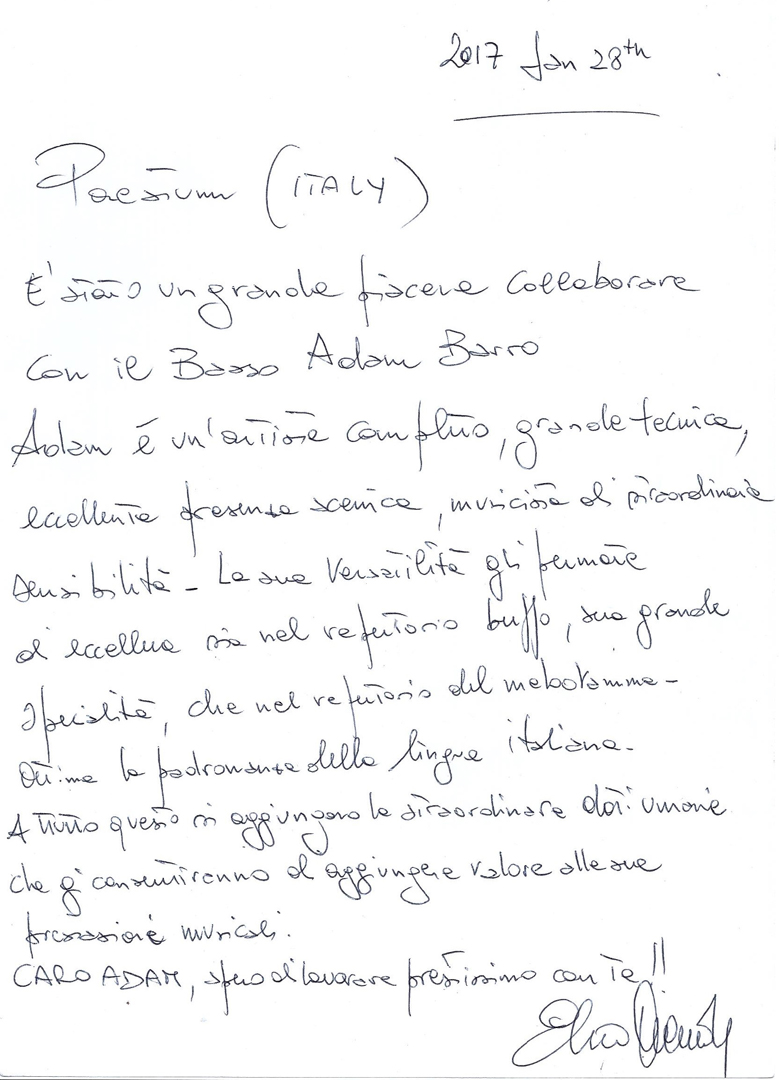 2017 Jan 28th
Paestum (ITALY)
E' stato un grande piacere collaborare
con il Basso Adam Barro
Adam é un'artista completo, grande tecnica,
eccellente presenza scenica, musicista di straordinaria
sensibilità - La sua versatilità gli permette
di eccellere sia nel repertorio buffo, sua grande
specialità, che nel repertorio del melodramma -
Ottima la padronanza della lingua italiana.
A tutto questo si aggiungono le straordinare doti umane
che gli consentiranno di aggiungere valore alle sue
prestazioni musicali.
CARO ADAM, spero di lavorare prestissimo con Te!!